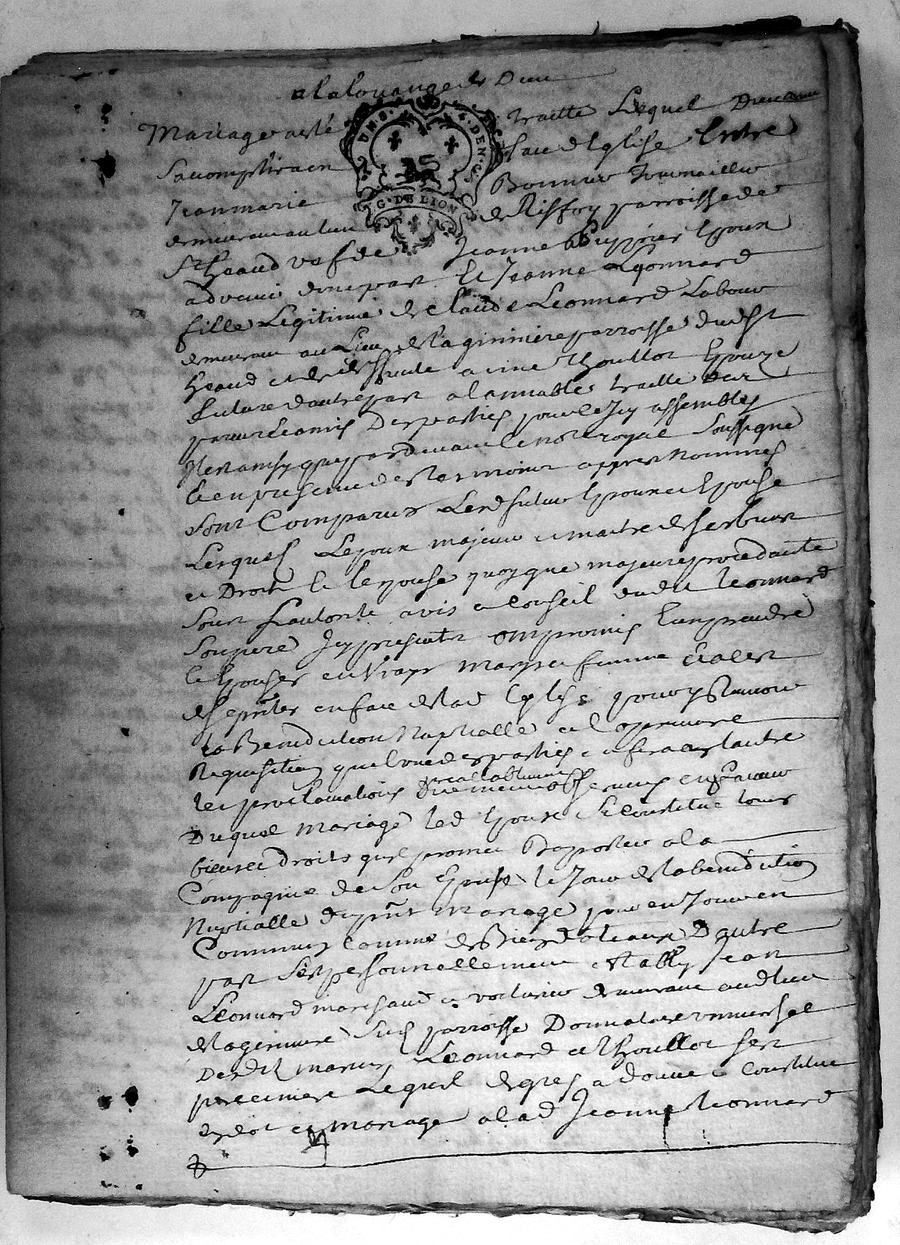 a la louange de Dieu
Mariage a esté traitté Lequel Dieu aidant
Sacomplira en face d'Eglise Entre
UN S. 4. DEN.
G. DE LION
Jean marie Bonnier Journaillier
demeurant au lieu de Riffoy parroisse de
St heand vef de Jeanne Epoux
advenir dune part Et Jeanne Leonnard
fille Legitime de Claude Leonnard Labour
demeurant au Lieu de la gininiere parroisse dud St
heand et de thoullot Epouze
future dautre part a lamiable traitté par
parens et amis Des parties pour ce Icy assembles
par devant le not.re royal Soussigné
Et en presence des temoins appres Nommés
Sont Comparus Lesd futur Epoux et Epouse
Lesquels Lepoux majeur et maitre de ses biens
et Droits Et lepouse quoyque majeure procedante
Sous Lautorité avis et Conseil dudit leonnard
Son pere Icy present ont promis Se prendre
Et Epouser en vrays mary et femme et aller
en face de lad Eglise pour y Recevoir
La Benediction Nuptialle a la premiere
Requisition que lune des parties en fera a lautre
les proclamations prealablement
Duquel mariage led Epoux Se Constitue tous
biens et droits quil promet Rapporter a la
Compagnie de Son Epouse le Jour de la benediction
Nuptialle du pnt mariage pour en Jouir en
Commun Comme de Biens Dautre
part Sest personnellement etably Jean
Leonnard marchand et voiturier demeurant aud lieu
de la gininiere Susd parroisse Donnataire universel
Desdits mariés Leonnard et thoullot Ses
pere et mere Lequel de gres a donné et Constitué
en dot et mariage a lad Jeanne Leonnard